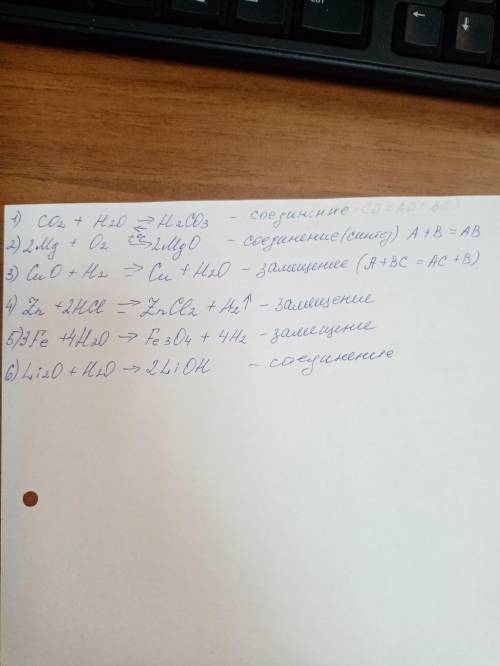 1) CO2 + H2O ⇄ H2CO3 - соединение
2) 2Mg + O2 ⇄ 2MgO - соединение (синтез) A+B = AB
3) CuO + H2 = Cu + H2O - замещение (A+BC = AC+B)
4) Zn + 2HCl = ZnCl2 + H2↑ - замещение
5) 3Fe + 4H2O → Fe3O4 + 4H2 - замещение
6) Li2O + H2O → 2LiOH - соединение